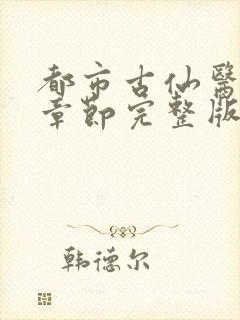 都市古仙醫
章節完整版
韩德尔